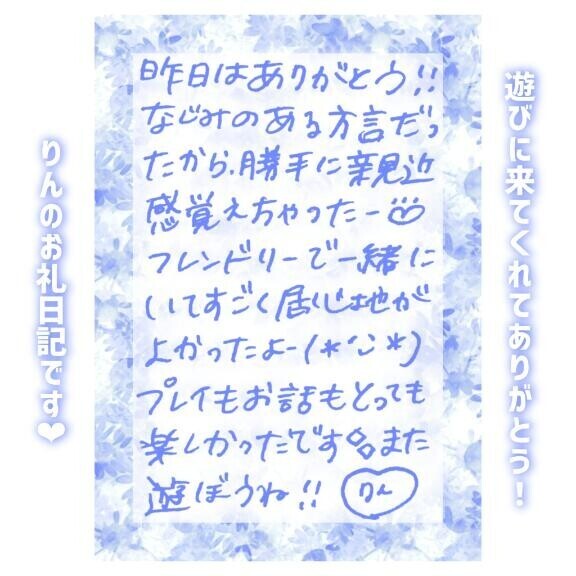 遊びに来てくれてありがとう！
昨日はありがとう!!
なじみのある方言だっ
たから、勝手に親近
感覚えちゃったー
フレンドリーで一緒に
いてすごく居心地が
よかったよー(*'ᴗ'*)
プレイもお話もとっても
楽しかったです また
遊ぼうね!! りん
りんのお礼日記です❤